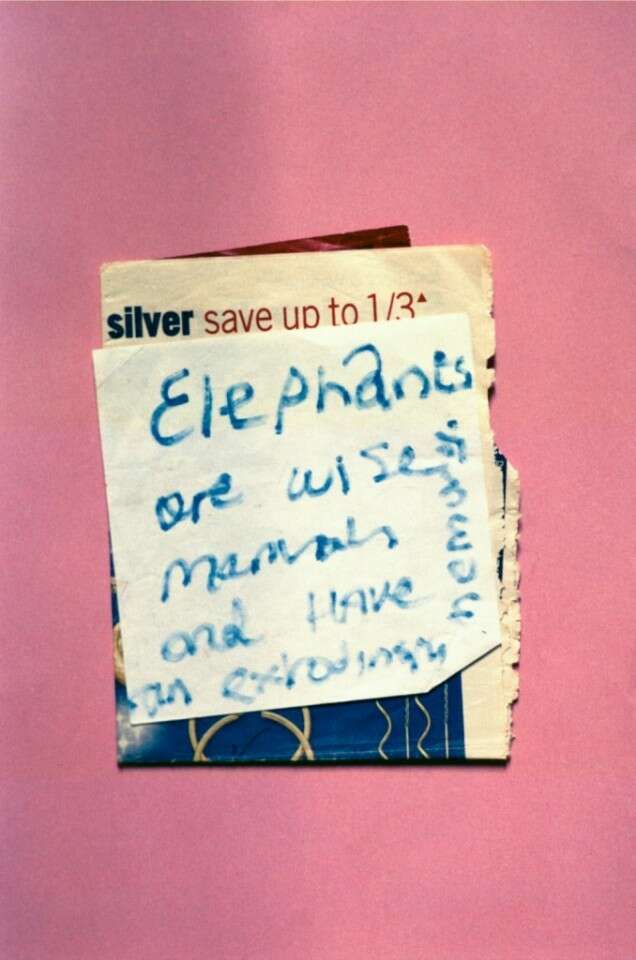 silver save up to 1/3▲
Elephants
are wise
Mammals
and Have
an extrodinary